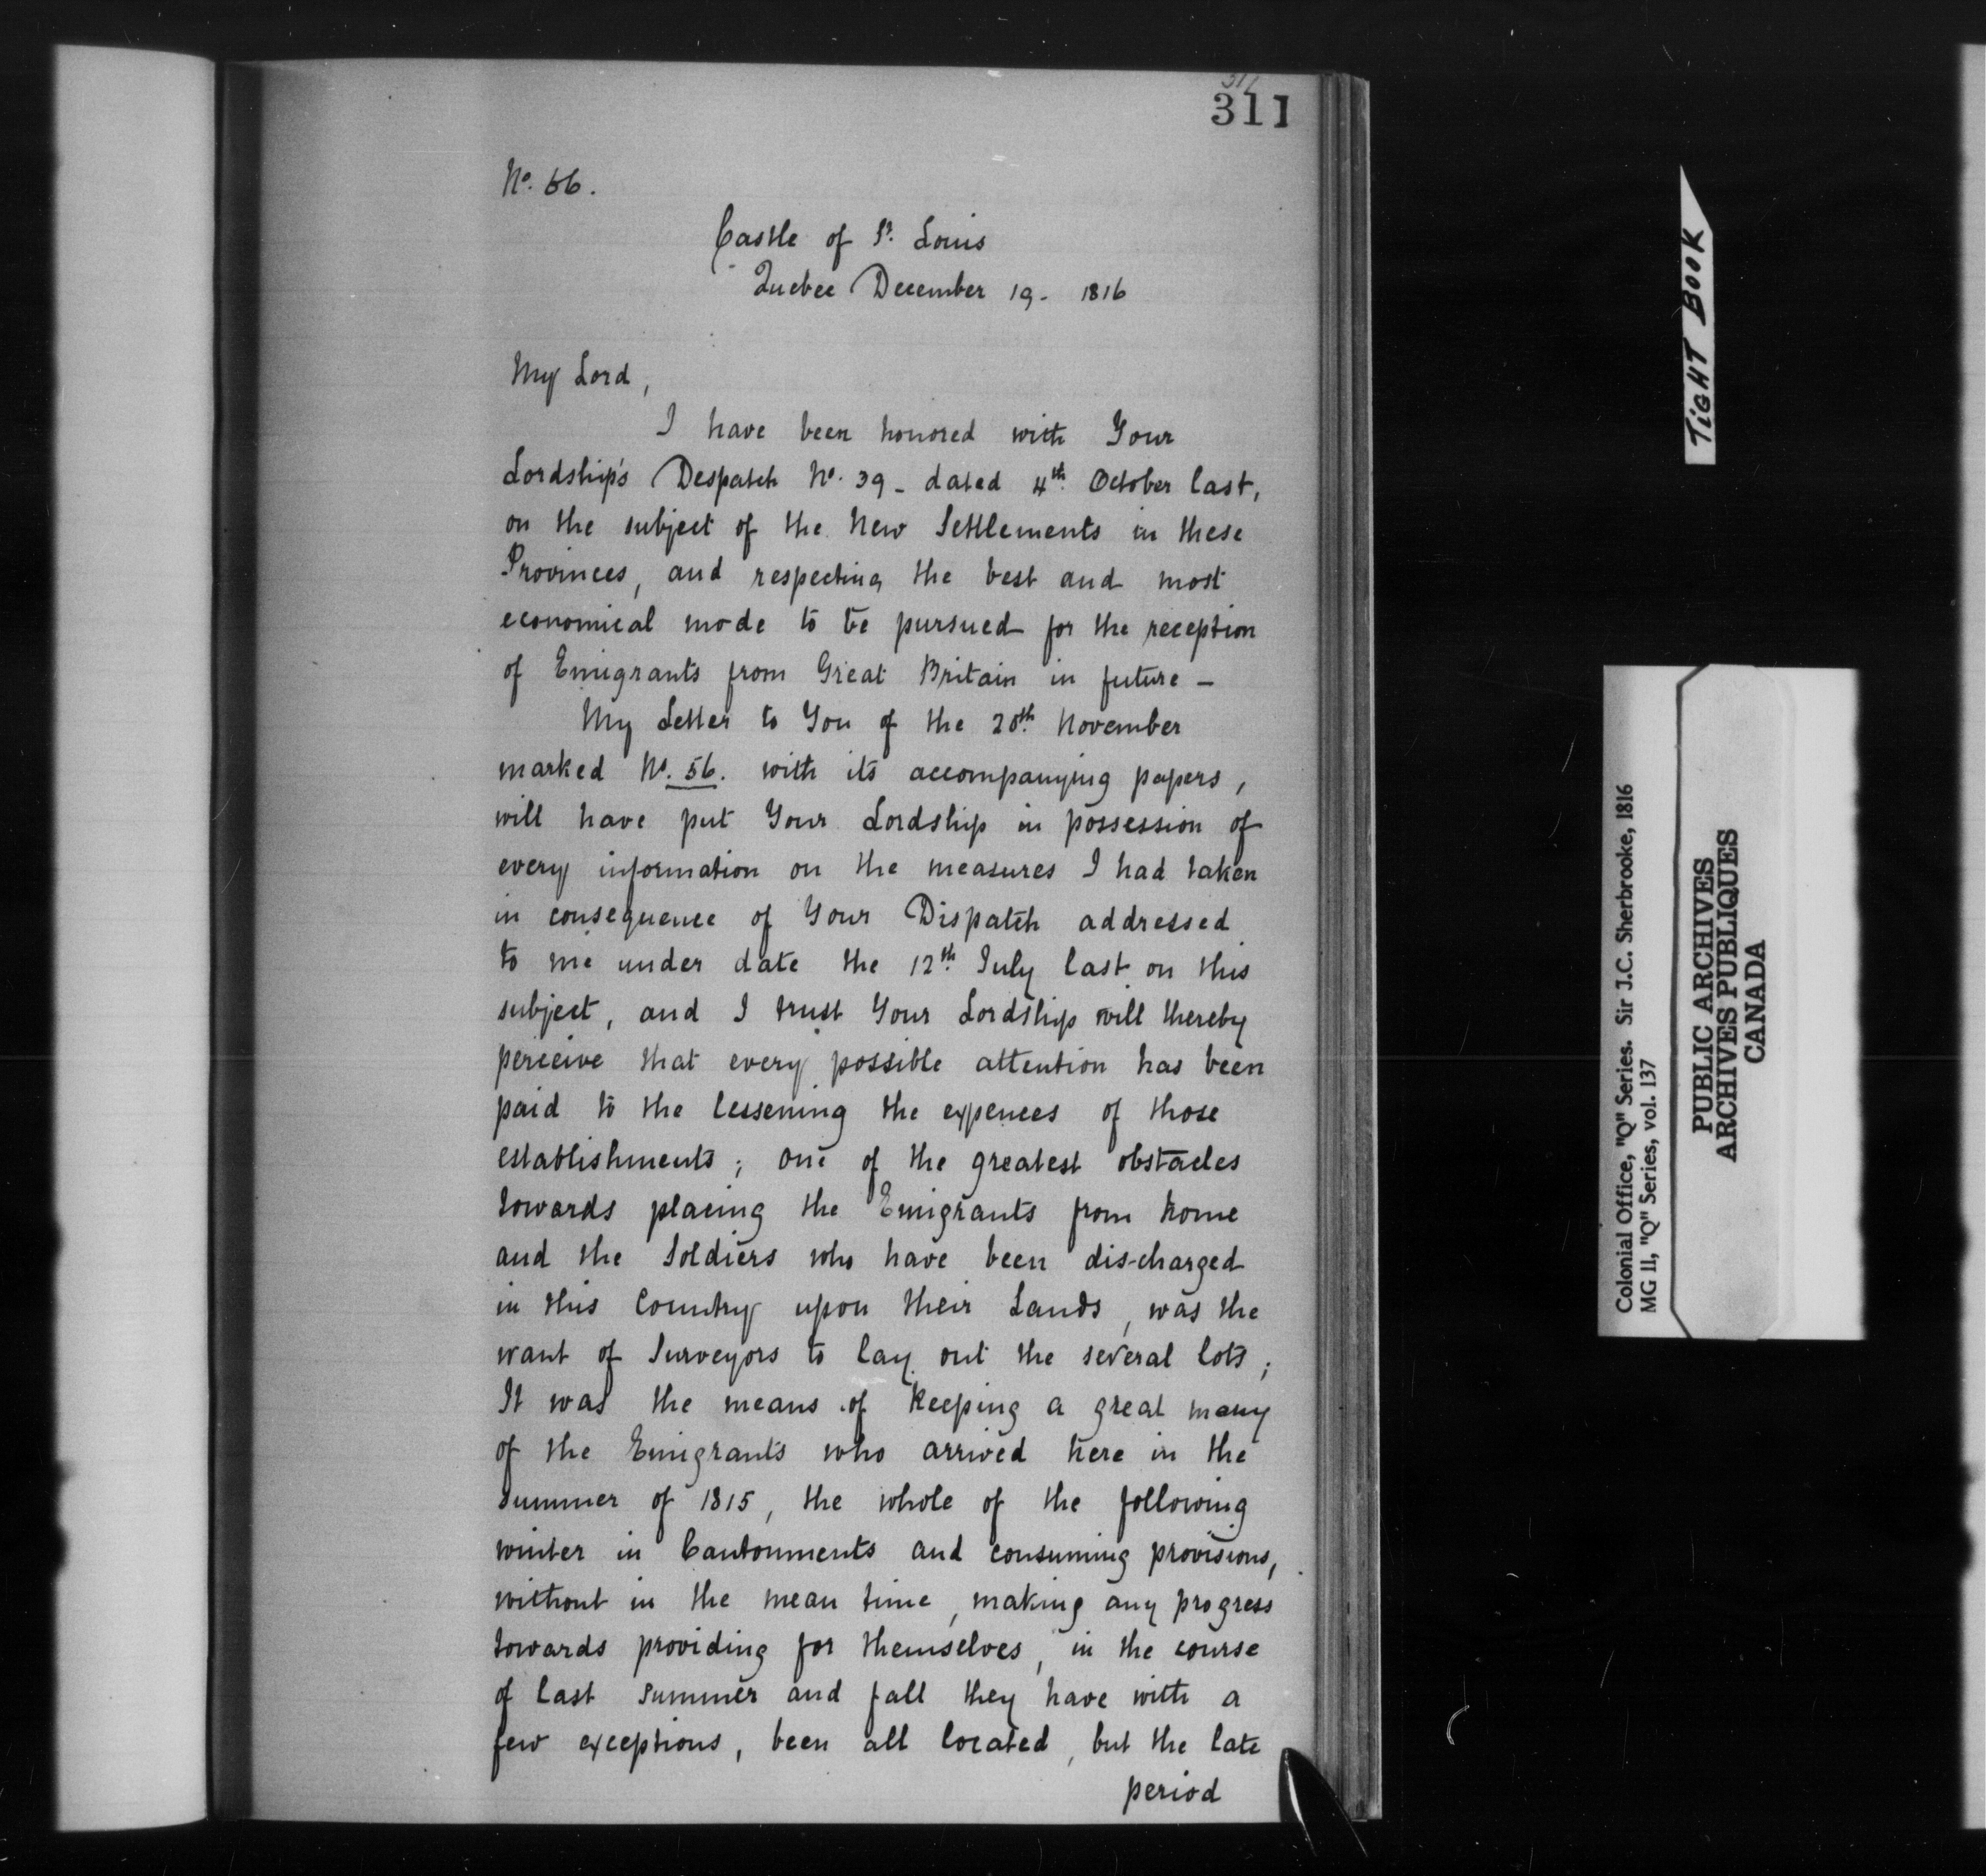 311
No. 66.
Castle of St. Louis
Quebec December 19 - 1816
My Lord,
I have been honored with Your
Lordship's Despatch No. 39 - dated 4th October last,
on the subject of the New Settlements in these
Provinces, and respecting the best and most
economical mode to be pursued for the reception
of Emigrants from Great Britain in future -
My Letter to You of the 20th November
marked No. 56. with its accompanying papers,
will have put Your Lordship in possession of
every information on the measures I had taken
in consequence of Your Dispatch addressed
to me under date the 12th July last on this
subject, and I trust Your Lordship will thereby
perceive that every possible attention has been
paid to the lessening the expences of those
establishments; one of the greatest obstacles
towards placing the Emigrants from home
and the Soldiers who have been discharged
in this Country upon their Lands, was the
want of Surveyors to lay out the several lots;
It was the means of keeping a great many
of the Emigrants who arrived here in the
summer of 1815, the whole of the following
winter in Cantonments and consuming provisions,
without in the mean time, making any progress
towards providing for themselves, in the course
of last summer and fall they have with a
few exceptions, been all located, but the late
period
TIGHT BOOK
Colonial Office, "Q" Series. Sir J.C. Sherbrooke, 1816
MG 11, "Q" Series, vol. 137
PUBLIC ARCHIVES
ARCHIVES PUBLIQUES
CANADA